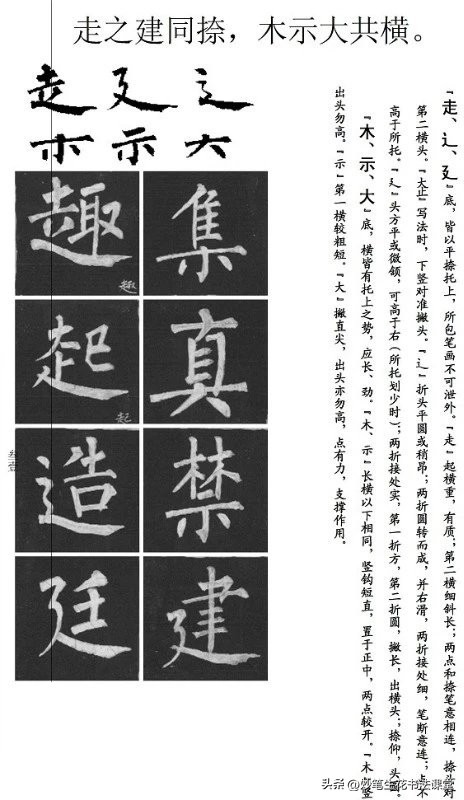 走之建同捺，木示大共横。
走廴辶
木示大
趣集
趣
起真
起
造禁
叁壹
廷建
『走、辶、廴』底，皆以平捺托上，所包笔画不可泄外。『走』起横重，有质；第二横细斜长；两点和捺笔意相连，捺头对
第二横头。『大止』写法时，下竖对准撇头。『辶』折头平圆或稍昂；两折圆转而成，并右滑，两折接处细，笔断意连；点不
高于所托。『廴』头方平或微倾，可高于右（所托划少时）；两折接处实，第一折方，第二折圆，撇长，出横头；捺仰，头圆。
『木、示、大』底，横皆有托上之势，应长、劲。『木、示』长横以下相同，竖钩短直，置于正中，两点较开。『木』竖
出头勿高。『示』第一横较粗短。『大』撇直尖，出头亦勿高，点有力，支撑作用。
头条 @妙笔生花书法课堂